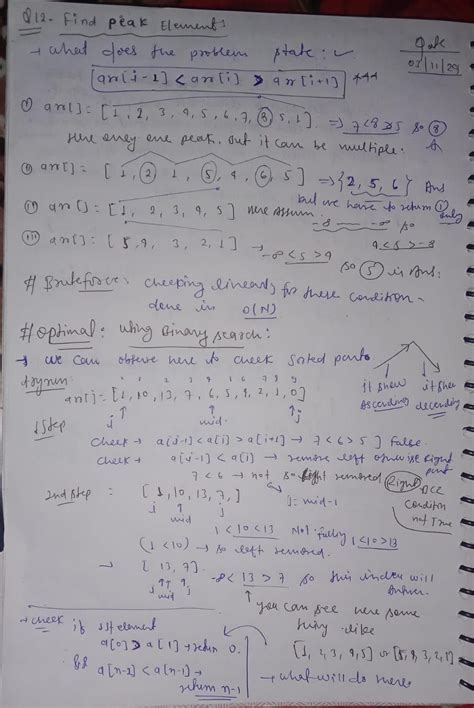 Q12. Find peak Element:
Date
03/11/24
→ what does the problem state: ✓
arr[i-1] < arr[i] > arr[i+1] ***
① arr[] = [1, 2, 3, 4, 5, 6, 7, 8, 5, 1] ⇒ 7<8>5 so ⑧
Here only one peak. but it can be multiple.
② arr[] = [1, 2, 1, 5, 4, 6, 5] ⇒ {2, 5, 6} Ans
but we have to return ① only
arr[] = [1, 2, 3, 4, 5] Here assum.
so
(iii) arr[] = [5, 4, 3, 2, 1] →
-∞ < 5 > 4
4 < 5 > -∞
so ⑤ is Ans.
# Bruteforce: checking linearly for these condition
done in O(N)
# Optimal: using Binary search:
→ we can observe here to check sorted part
arr[] = [1, 10, 13, 7, 6, 5, 4, 2, 1, 0]
i mid j
it show Ascending
it show decending
1 step
check → a[i-1] < a[i] > a[i+1] → 7<6>5] false.
check → a[i-1] < a[i] → remove left otherwise Right part
7 < 6 → not so Right removed
2nd step = [1, 10, 13, 7,] j = mid-1
i mid j
Condition not True
1 < 10 < 13 Not fully 1<10>13
(1 < 10) → so left removed.
→ [13, 7].
i mid j
-∞ < 13 > 7 so this index will Answer.
you can see here some thing like
[1, 2, 3, 4, 5] or [5, 4, 3, 2, 1]
→ what will do here
→ check if 1st element
a[0] > a[1] → return 0.
&&
a[n-2] < a[n-1] →
return n-1